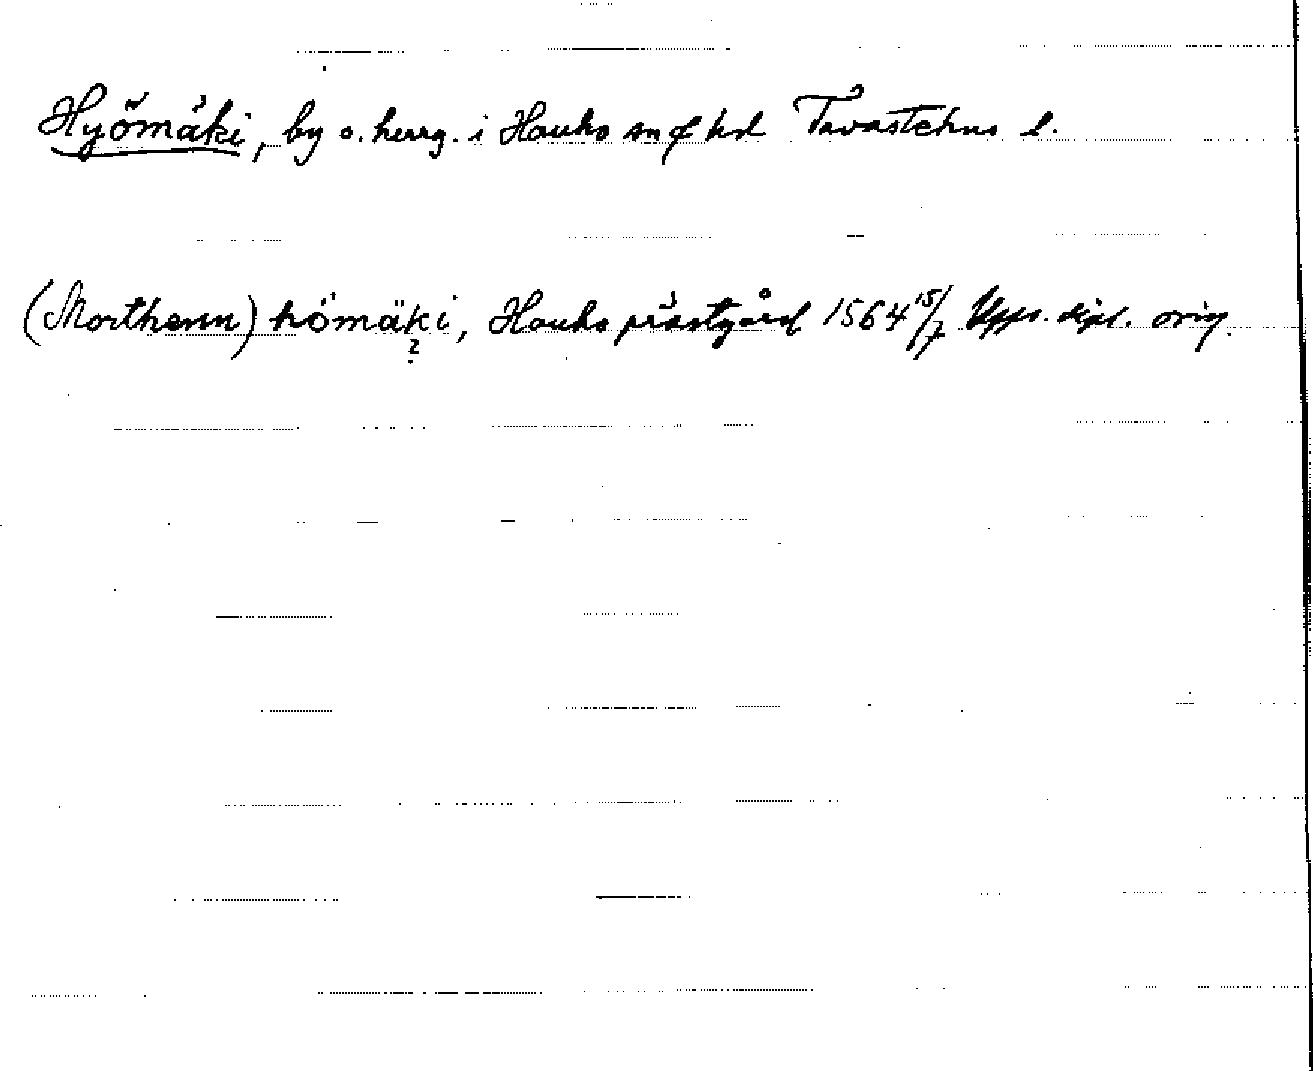 Hyömäki, by o. herrg. i Hauho sn o hd Tavastehus l.
(Morthenn) hömäki, Hauho prästgård 1564 15/7 Upps. dipl. orig.
?